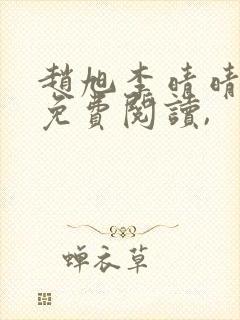 趙旭李晴晴
免費閱讀,
蟬衣草